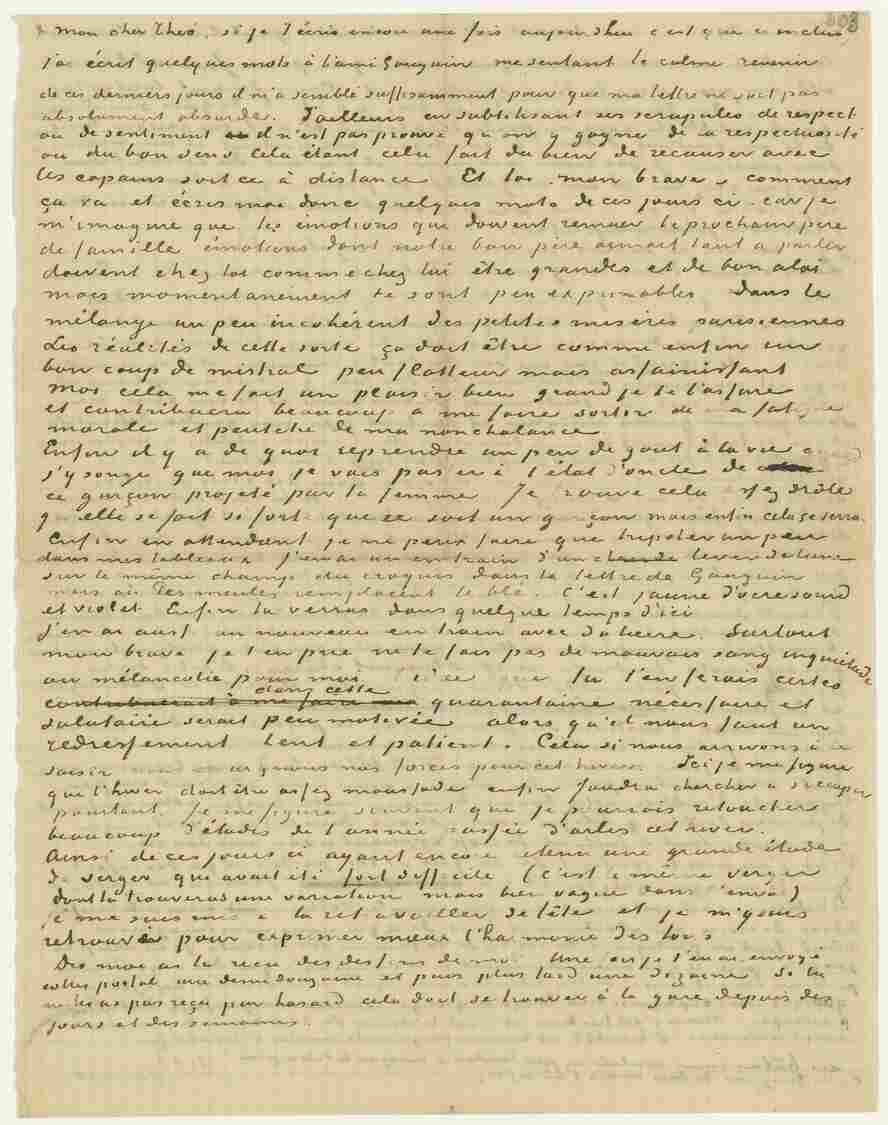 803
mon cher Theo, si je t'écris encore une fois aujourd'hui c'est que ci inclus
j'ai écrit quelques mots à l'ami Gauguin me sentant le calme revenir
de ces derniers jours il m'a semblé suffisamment pour que ma lettre ne soit pas
absolument absurde. D'ailleurs en subtilisant ses scrupules de respect
ou de sentiment il n'est pas prouvé qu'on y gagne de la respectuosité
ou du bon sens Cela étant cela fait du bien de recauser avec
les copains soit ce à distance Et toi mon brave comment
ça va et écris moi donc quelques mots de ces jours ci. car je
m'imagine que les émotions que doivent remuer le prochain père
de famille émotions dont notre bon père aimait tant à parler
doivent chez toi comme chez lui être grandes et de bon aloi
mais momentanement te sont peu exprimables Dans le
mélange un peu incohérent des petites misères parisiennes
Les réalités de cette sorte ça doit être comme enfin un
bon coup de mistral peu flatteur mais assainissant
Moi cela me fait un plaisir bien grand je te l'assure
et contribuera beaucoup à me faire sortir de ma fatigue
morale et peutêtre de ma nonchalance
Enfin il y a de quoi reprendre un peu de gout à la vie quand
j'y songe que moi je vais passer à l'état d'oncle de
ce garçon projeté par ta femme Je trouve cela assez drôle
qu'elle se fait si forte que ce soit un garçon mais enfin cela se verra.
Enfin en attendant je ne peux faire que tripoter un peu
dans mes tableaux J'en ai un en train d'un lever de lune
sur le même champ du croquis dans la lettre de Gauguin
mais où les meules remplacent le blé. C'est jaune d'ocre sourd
et violet. Enfin tu verras dans quelque temps d'ici
j'en ai aussi un nouveau en train avec du lierre. Surtout
mon brave je t'en prie ne te fais pas de mauvais sang inquietude
ou mélancolie pour moi l'idée que tu t'en ferais certes
contribuerait à me faire dans cette quarantaine nécessaire et
salutaire serait peu motivée alors qu'il nous faut un
redressement lent et patient. Cela si nous arrivons à le
saisir nous épargnons nos forces pour cet hiver. Ici je me figure
que l'hiver doit être assez maussade enfin faudra chercher à s'occuper
pourtant. Je me figure souvent que je pourrais retoucher
beaucoup d'études de l'année passée d'arles cet hiver.
Ainsi de ces jours ci ayant encore retenu une grande étude
de verger qui avait été fort difficile (c'est le même verger
dont tu trouveras une variation mais bien vague dans l'envoi)
je me suis mis à la retravailler de tête et j'ai moyens
retrouvé pour exprimer mieux l'harmonie des tons
Dis moi as tu reçu des dessins de moi Une fois je t'en ai envoyé
colis postal une demi douzaine et puis plus tard une dizaine Si tu
ne les as pas reçu par hasard cela doit se trouver à la gare depuis des
jours et des semaines.